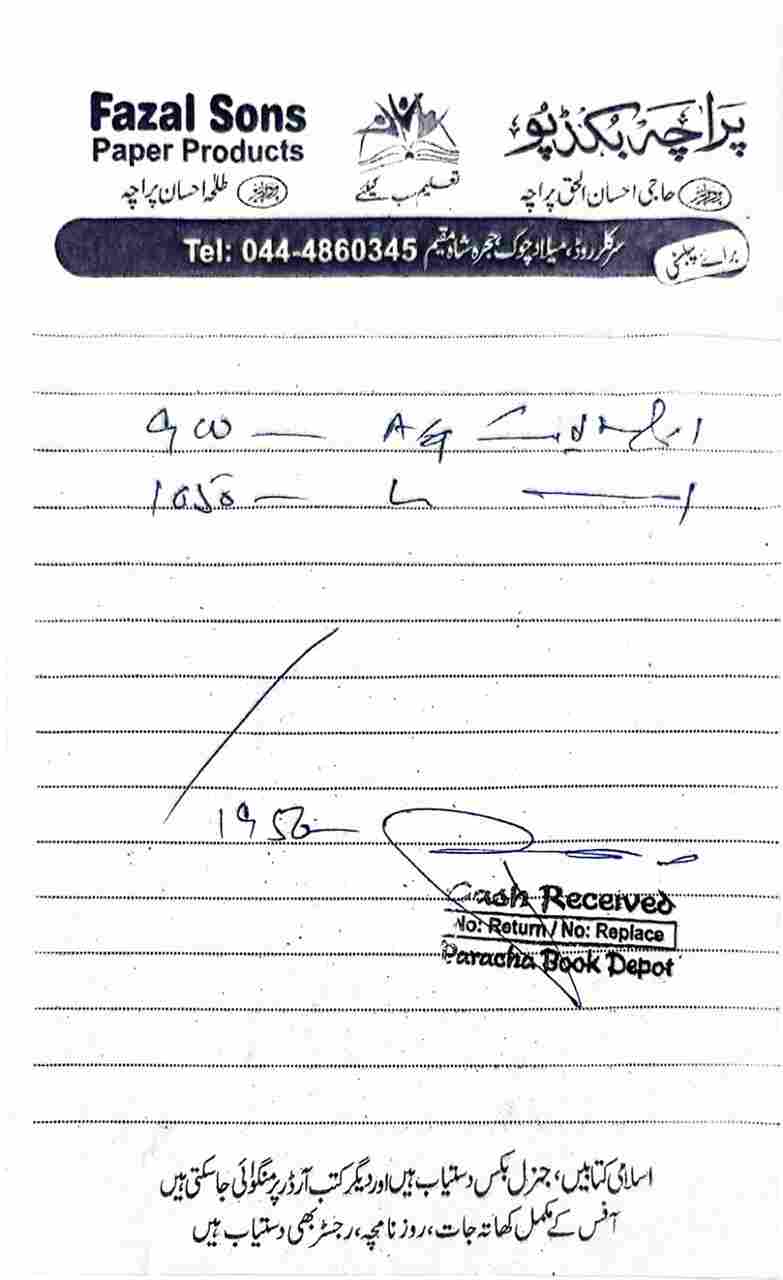 Fazal Sons
Paper Products
پراچہ بکڈپو
تعلیم سب کیلئے
پروپرائٹرز طلحہ احسان پراچہ
پروپرائٹرز حاجی احسان الحق پراچہ
برائے پبلسٹی
سرکلر روڈ، میلاد چوک حجرہ شاہ مقیم Tel: 044-4860345
900 —
1050 —
1950 —
Cash Received
No: Return / No: Replace
Paracha Book Depot
اسلامی کتابیں، جنرل بکس دستیاب ہیں اور دیگر کتب آرڈر پر منگوائی جا سکتی ہیں
آفس کے مکمل کھاتہ جات، روزنامچہ، رجسٹر بھی دستیاب ہیں